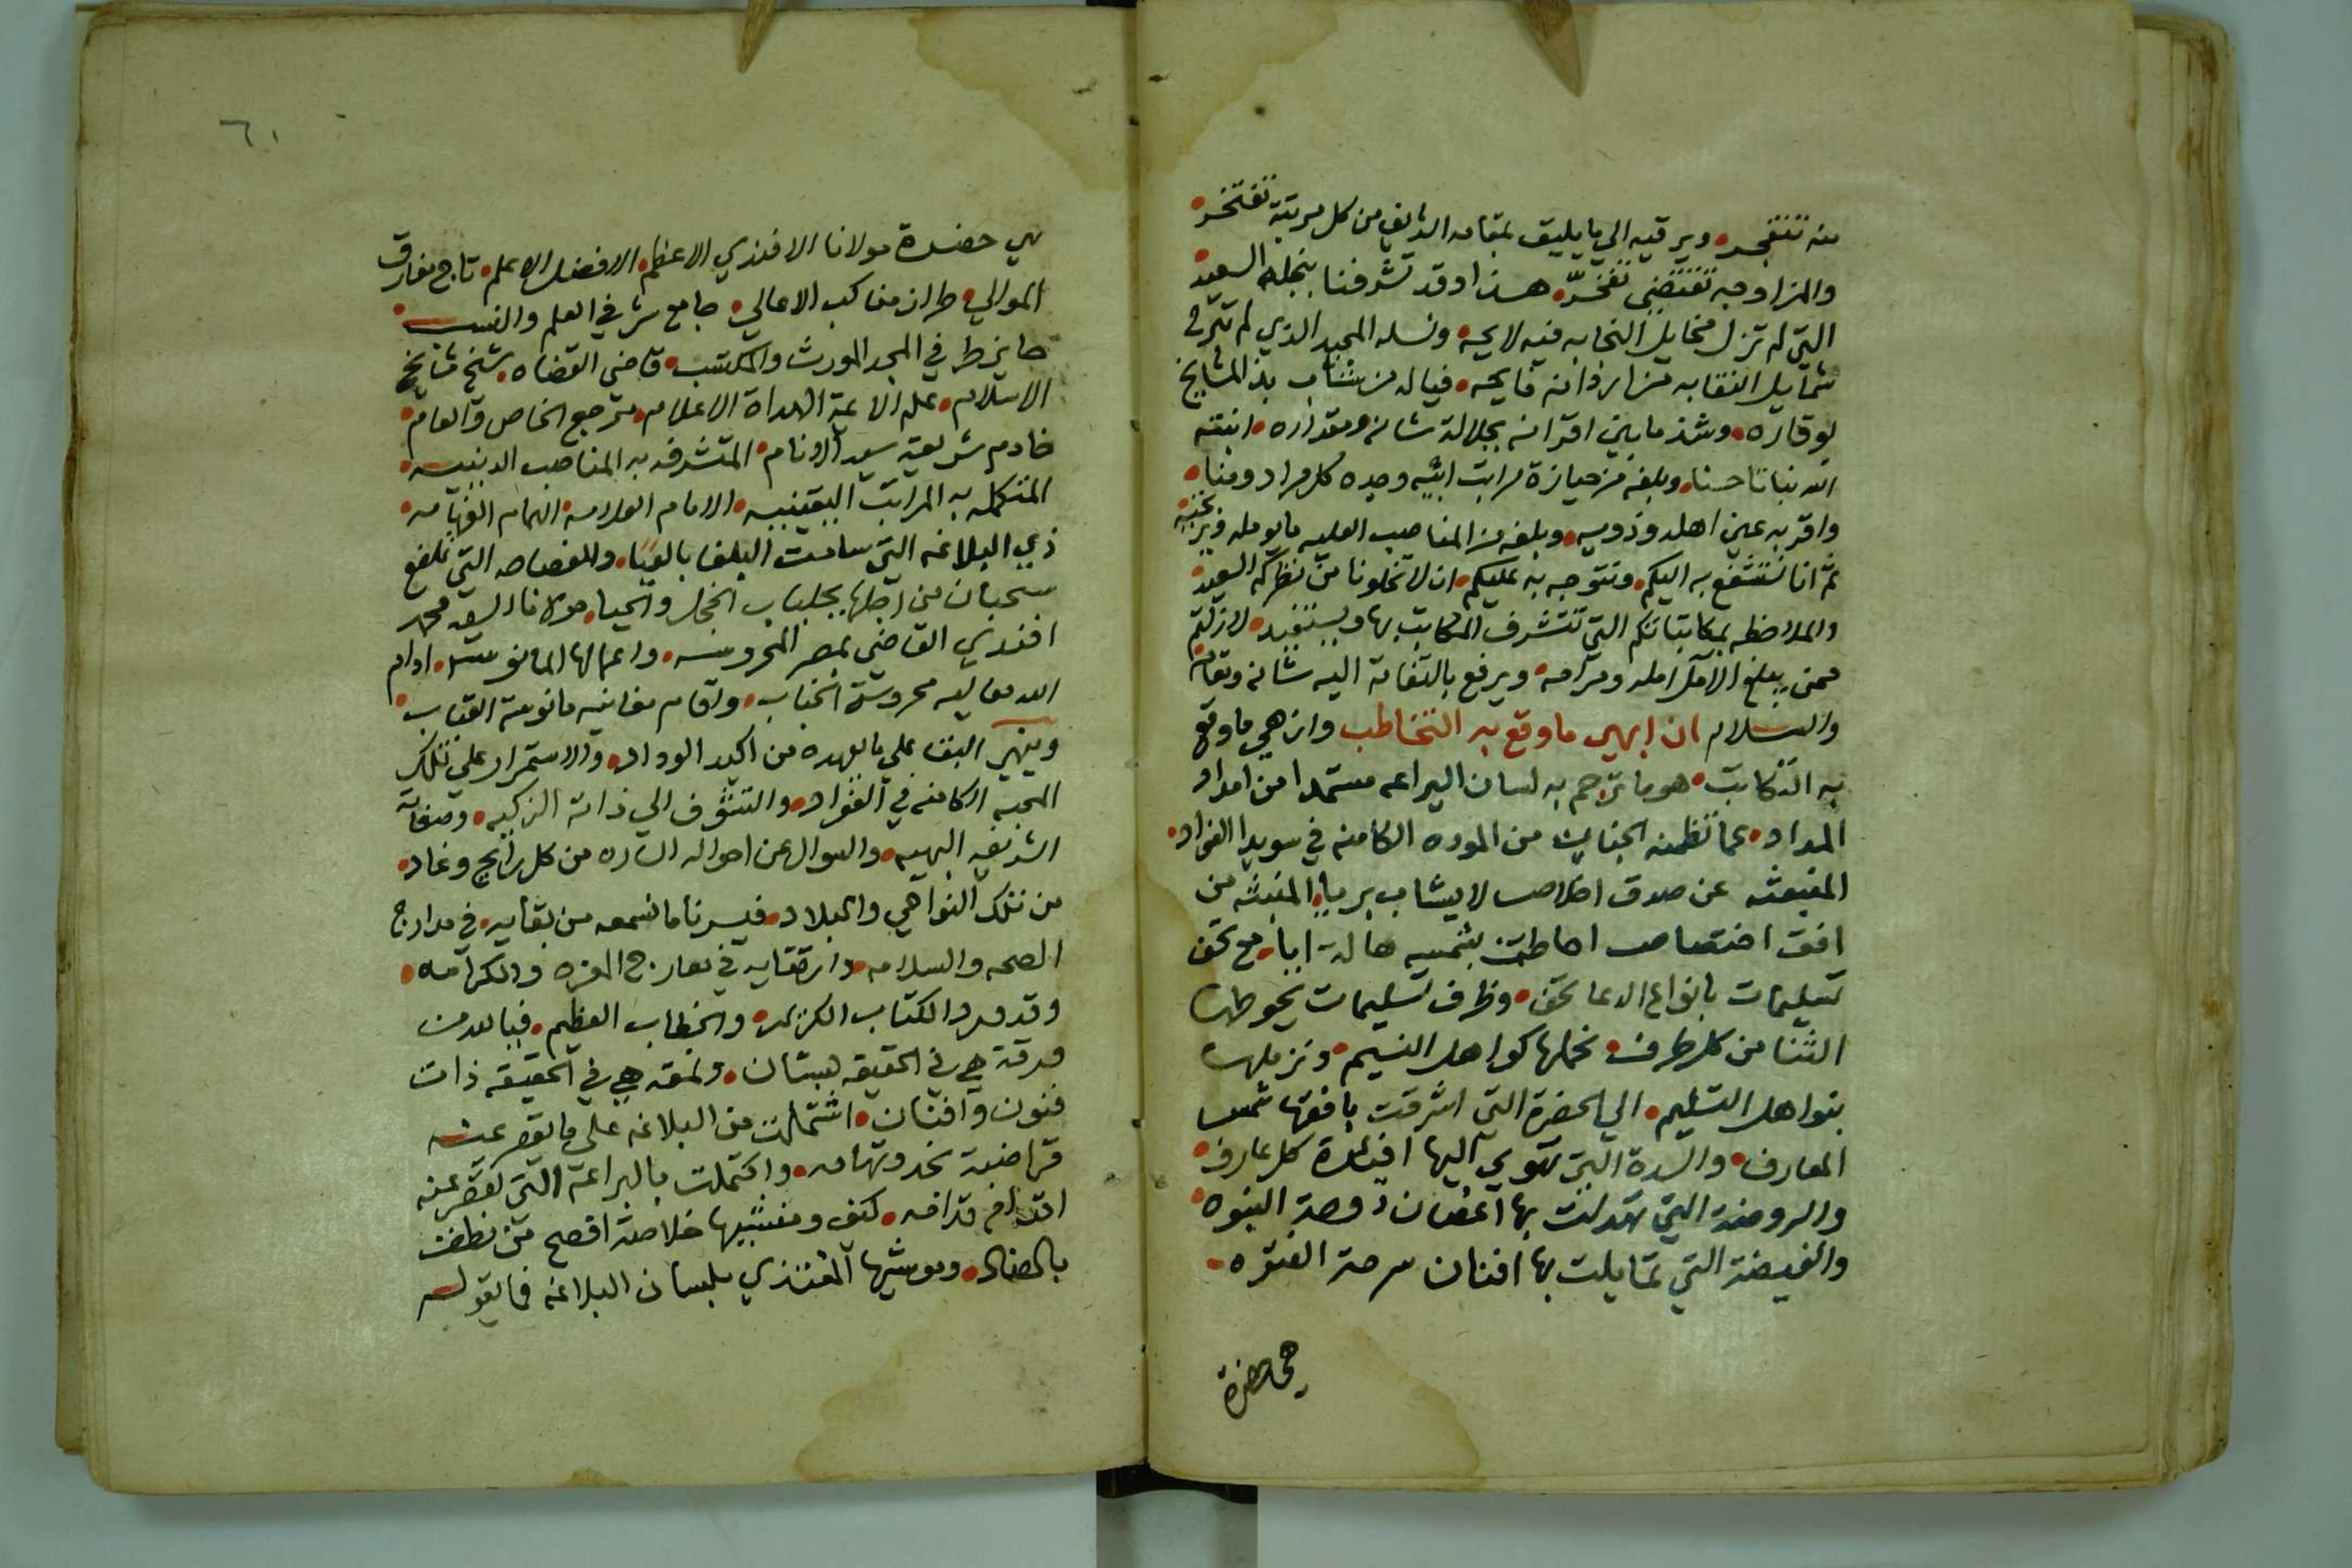 منه تنفجر، ويرقيه الي ما يليق بمقامه الذي من كل مرتبة تفتخر
والمزاوجه تقتضي تفخّر، هذا وقد تشرفنا بنجله السعيد
التي لم تزل مخايل النجابه فيه لايحه، ونسله المجيد الذي لم تبرح
شمايل النقابه من اردانه فايحه، فياله من شاب بذ المشايخ
بوقاره، وشذ ما بين اقرانه بجلالة شانه ومقداره، انبته
الله نباتا حسنا، وبلغه من حيازة مراتب ابيه وجده كل مراد ومنا
واقر به عين اهله وذويه، وبلغه من المناصب العليه ما يومله ويرتجيه
ثم انا نستشفع به اليكم، ونتوجه به عليكم، ان لا تخلونا من نظركم السعيد
والملاحظه بمكاتباتكم التي تتشرف المكاتب بها ويستفيد، لا زلتم
ممن يبلغ الامل امله ومرامه، ويرفع بالتفاته اليه شانه ومقامه
والسلام ان ابهي ما وقع به التخاطب وازهي ما وقع
به التكاتب، هو ما ترجم به لسان اليراعه مستمدا من امداد
المداد، عما تظمنه الجنان من الموده الكامنه في سويدا الفواد
المنبعثه عن صدق اخلاص لا يشاب برياء، المنبثه من
افق اختصاص احاطت بشمسه هالة ابا، مع تحف
تسليمات بانواع الدعا تحف، وظرف تسليمات يحوطها
الثنا من كل طرف، نحملها كواهل النسيم، ونزملها
بنواهل التسليم، الي الحضرة التي اشرقت بافقها شمس
المعارف، والسدة التي تهوي اليها افئدة كل عارف
والروضة التي تهدلت بها اغصان دوحة النبوه
والغيضة التي تمايلت بها افنان سرحة الفتوه
هي حضرة
٦١
هي حضرة مولانا الافندي الاعظم، الافضل الاعلم، تاج مفارق
الموالي، طراز مناكب الاعالي، جامع شرفي العلم والنسب
حايز طرفي المجد المورث والمكتسب، قاضي القضاه، شيخ مشايخ
الاسلام، علم الائمة الهداة الاعلام، مرجع الخاص والعام
خادم شريعة سيد الانام، المتشرفه به المناصب الدينيه
المتكمله به المراتب اليقينيه، الامام العلامه، الهمام الفهامه
ذي البلاغه التي سامت البلغا بالعيا، والفصاحه التي تلفع
سحبان من اجلها بجلباب الخجل والحيا، مولانا السيد محمد
افندي القاضي بمصر المحروسه، واعمالها المانوسه، ادام
الله معاليه محروسة الجناب، واقام مغانيه مانوسة القباب
وينهي البقا علي ما يعهده من اكيد الوداد، والاستمرار علي تلك
المحبه الكامنه في الفواد، والتشوف الي ذاته الزكيه، وصفاته
الشريفه البهيه، والسوال عن احواله الساره من كل رايح وغاد
من تلك النواحي والبلاد، فيسرنا ما نسمعه من بقايه، في مدارج
الصحه والسلامه، وارتقايه في معارج العزه والكرامه
وقد ورد الكتاب الكريم، والخطاب العظيم، فيالله من
ورقة هي في الحقيقه بستان، ونمقه هي في الحقيقه ذات
فنون وافنان، اشتملت من البلاغه علي ما يقصر عنه
قراضبة نجد وتهامه، واكتملت بالبراعة التي تقصر عنه
اقدام قدامه، كيف ومنشيها خلاصة افصح من نطق
بالضاد، وموشيها المغتذي بلسان البلاغه فما يقوله